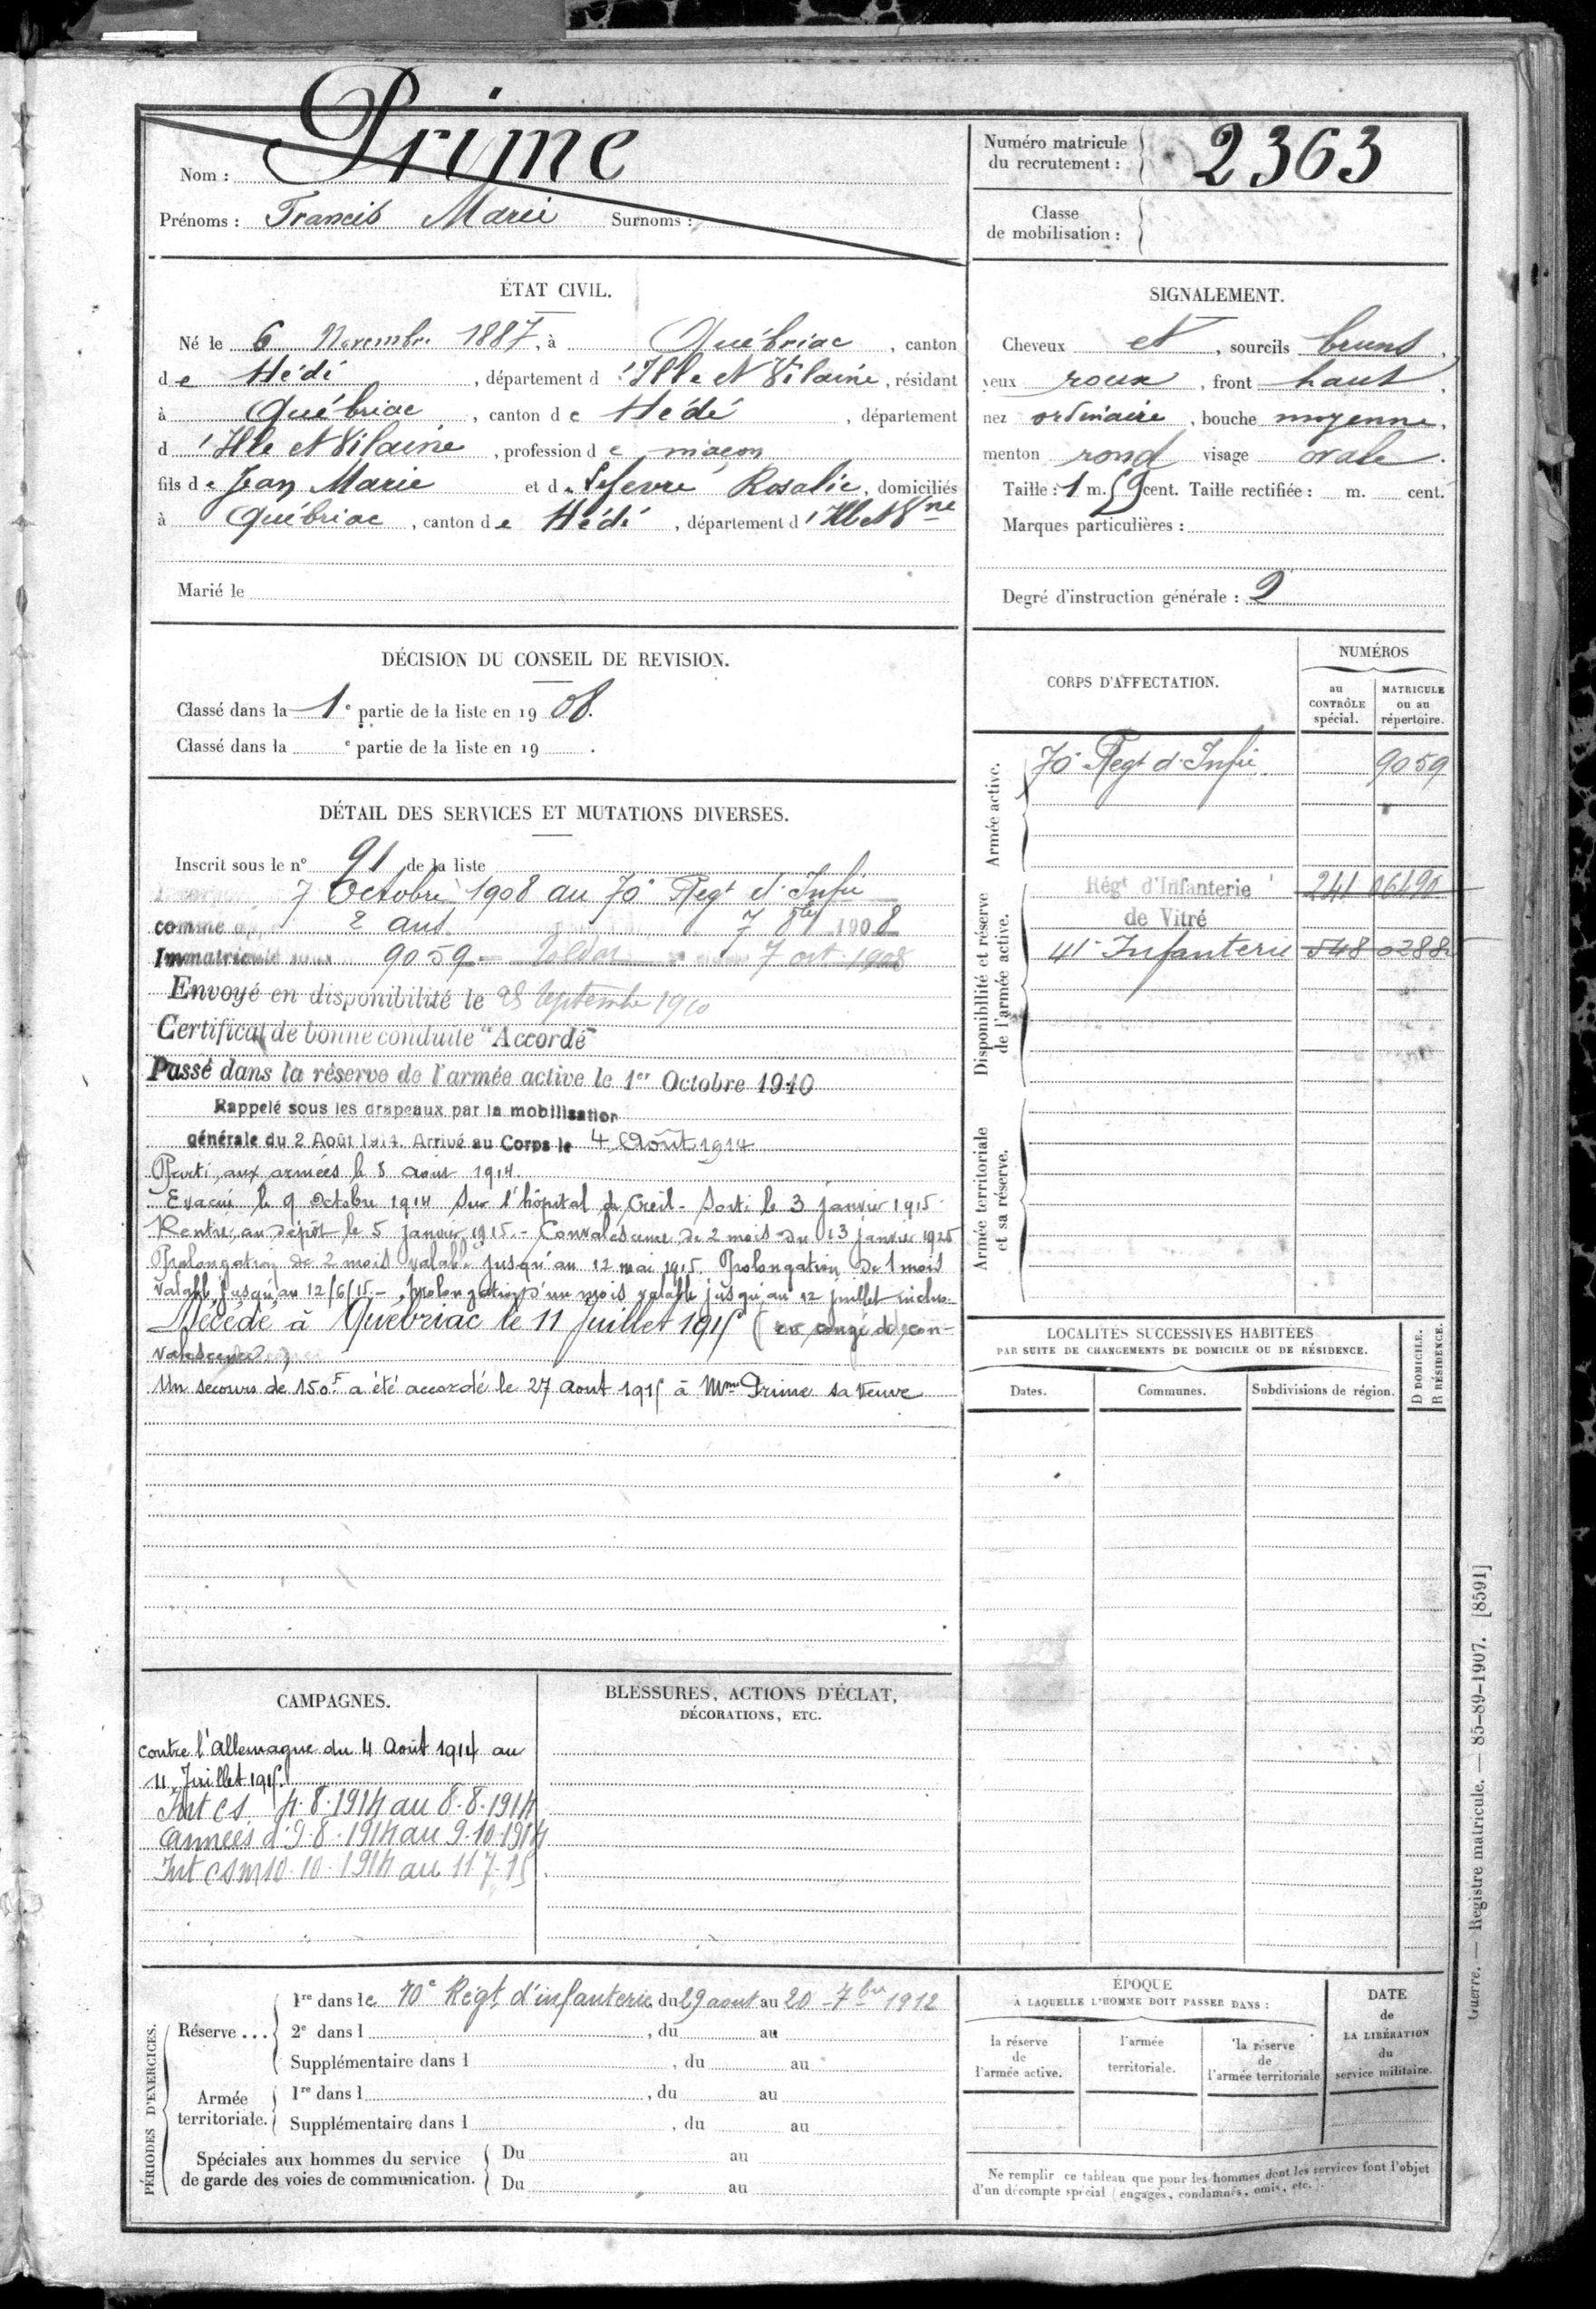 Nom : Prime
Prénoms : Francis Marie Surnoms :
Numéro matricule
du recrutement : 2363
Classe
de mobilisation :
ÉTAT CIVIL.
Né le 6 Novembre 1887, à Québriac, canton
de Hédé, département d'Ille et Vilaine, résidant
à Québriac, canton de Hédé, département
d'Ille et Vilaine, profession de maçon
fils de Jean Marie et de Lefevre Rosalie, domiciliés
à Québriac, canton de Hédé, département d'Ille et Vne
Marié le
SIGNALEMENT.
Cheveux et, sourcils bruns,
yeux roux, front haut,
nez ordinaire, bouche moyenne,
menton rond visage ovale.
Taille : 1 m. 59 cent. Taille rectifiée : m. cent.
Marques particulières :
Degré d'instruction générale : 2
DÉCISION DU CONSEIL DE REVISION.
Classé dans la 1e partie de la liste en 1908.
Classé dans la e partie de la liste en 19 .
DÉTAIL DES SERVICES ET MUTATIONS DIVERSES.
Inscrit sous le n° 91 de la liste
7 Octobre 1908 au 70e Regt d'Infie
comme 2 ans 7 8bre 1908
Immatriculé sous 9059 7 oct 1908
Envoyé en disponibilité le 25 Septembre 1910
Certificat de bonne conduite "Accordé"
Passé dans la réserve de l'armée active le 1er Octobre 1910
Rappelé sous les drapeaux par la mobilisation
générale du 2 Août 1914. Arrivé au Corps le 4 Août 1914
Parti aux armées le 8 août 1914.
Evacué le 9 Octobre 1914 sur l'hôpital de Creil. Sorti le 3 janvier 1915.
Rentré au dépôt le 5 janvier 1915. - Convalescence de 2 mois du 13 janvier 1925
Prolongation de 2 mois valable jusqu'au 12 mai 1915. Prolongation de 1 mois
valable jusqu'au 12/6/15. - Prolongation d'un mois valable jusqu'au 12 juillet inclus.
Décédé à Québriac le 11 Juillet 1915 (en congé de con-
valescence)
Un secours de 150F a été accordé le 27 Aout 1915 à Mme Prime sa veuve
CORPS D'AFFECTATION.
NUMÉROS
au
CONTRÔLE
spécial.
MATRICULE
ou au
répertoire.
Armée active.
70e Regt d'Infie 9059
Disponibilité et réserve
de l'armée active.
Régt d'Infanterie 241 06490
de Vitré
41e Infanterie 548
Armée territoriale
et sa réserve.
LOCALITÉS SUCCESSIVES HABITÉES
PAR SUITE DE CHANGEMENTS DE DOMICILE OU DE RÉSIDENCE.
D DOMICILE.
R RÉSIDENCE.
Dates. Communes. Subdivisions de région.
CAMPAGNES.
contre l'Allemagne du 4 Août 1914 au
11 Juillet 1915.
Int CS 4.8.1914 au 8.8.1914
Armées d. 9.8.1914 au 9.10.1914
Int CSM 10.10.1914 au 11 7.15
BLESSURES, ACTIONS D'ÉCLAT,
DÉCORATIONS, ETC.
PÉRIODES D'EXERCICES.
Réserve ...
1re dans le 70e Régt d'infanterie du 29 aout au 20 - 7bre 1912
2e dans l , du au
Supplémentaire dans l , du au
Armée
territoriale.
1re dans l , du au
Supplémentaire dans l , du au
Spéciales aux hommes du service
de garde des voies de communication.
Du au
Du au
ÉPOQUE
À LAQUELLE L'HOMME DOIT PASSER DANS :
la réserve
de
l'armée active.
l'armée
territoriale.
la réserve
de
l'armée territoriale
DATE
de
LA LIBÉRATION
du
service militaire.
Ne remplir ce tableau que pour les hommes dont les services font l'objet
d'un décompte spécial (engagés, condamnés, omis, etc.).
Guerre. — Registre matricule. — 85-89-1907. [8591]